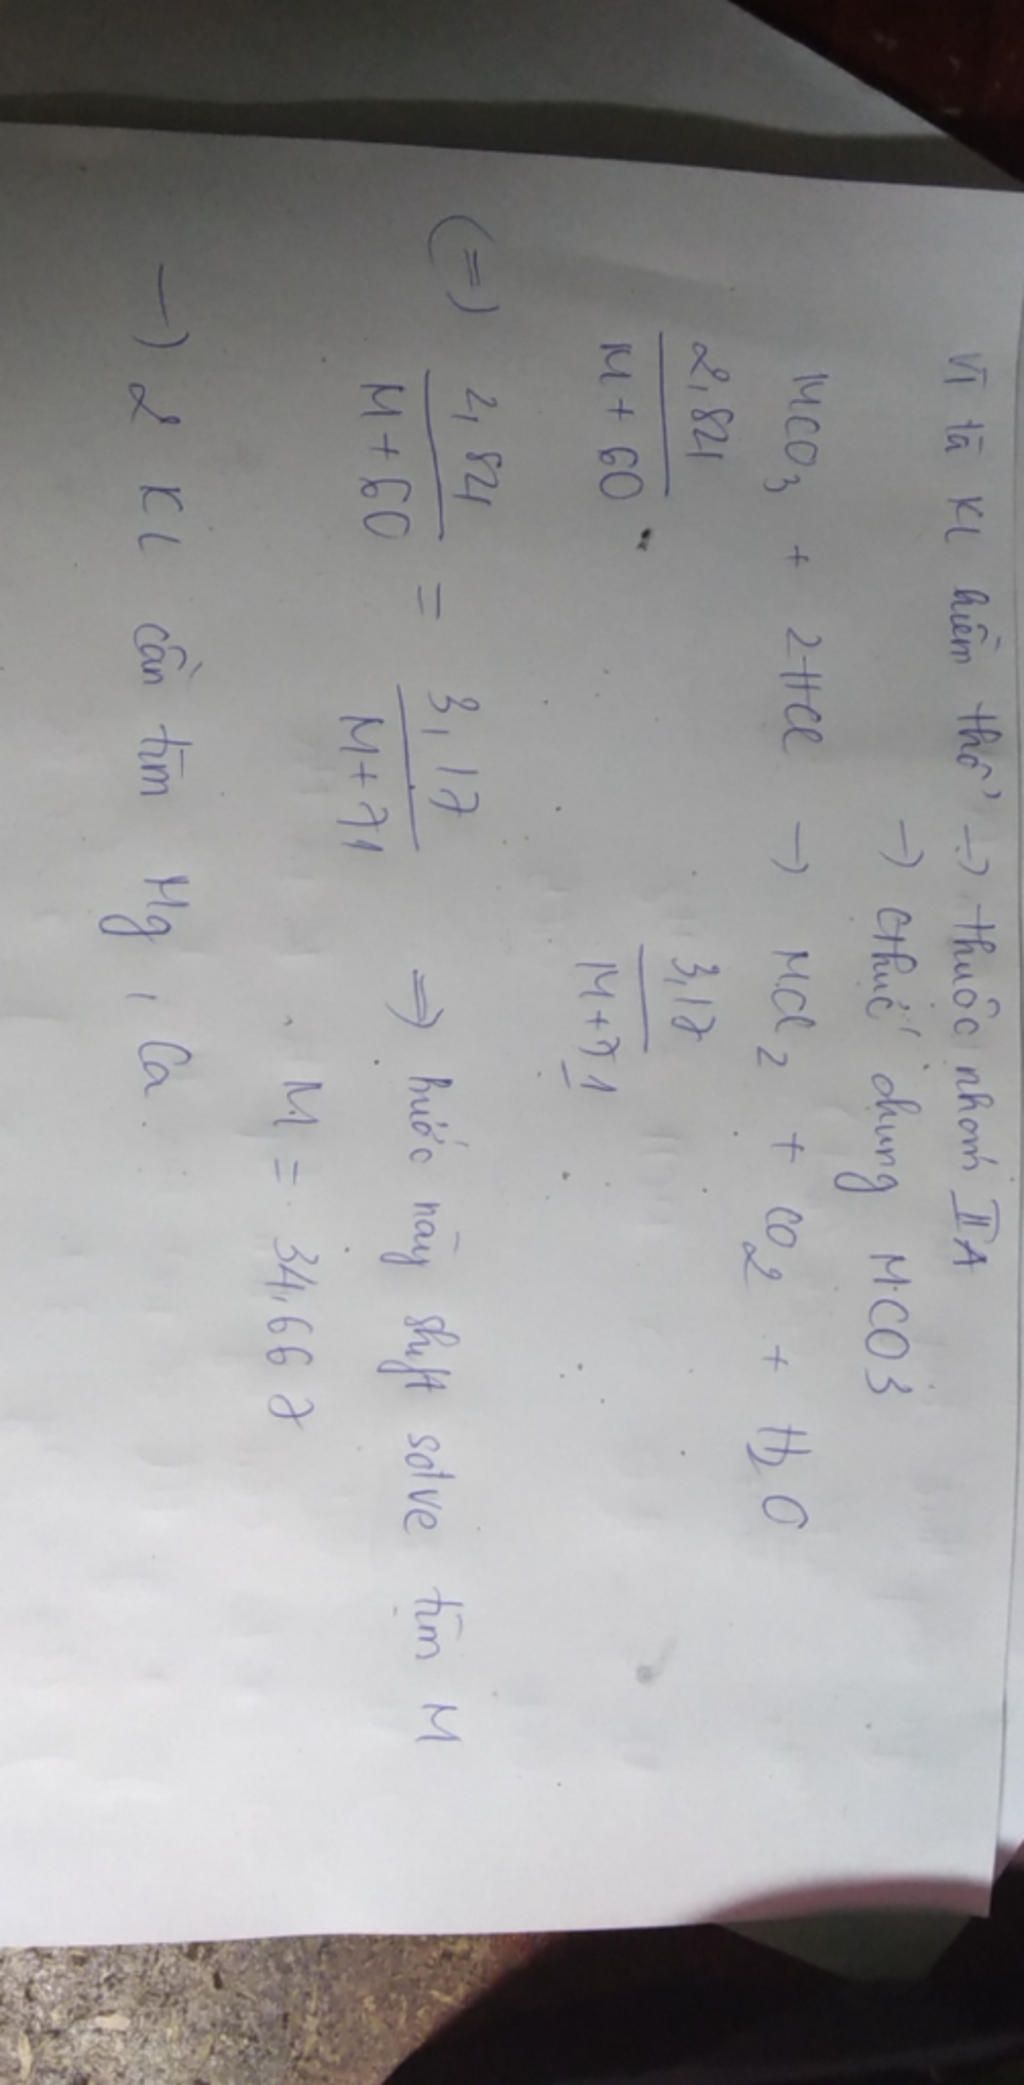 Vì là KL kiềm thổ -> thuộc nhóm IIA
-> Cthức chung MCO3
MCO3 + 2HCl -> MCl2 + CO2 + H2O
2,84 / M + 60    3,17 / M + 71
(=) 2,84 / M + 60 = 3,17 / M + 71 => bước này shift solve tìm M
M = 34,667
-> 2 KL cần tìm Mg, Ca